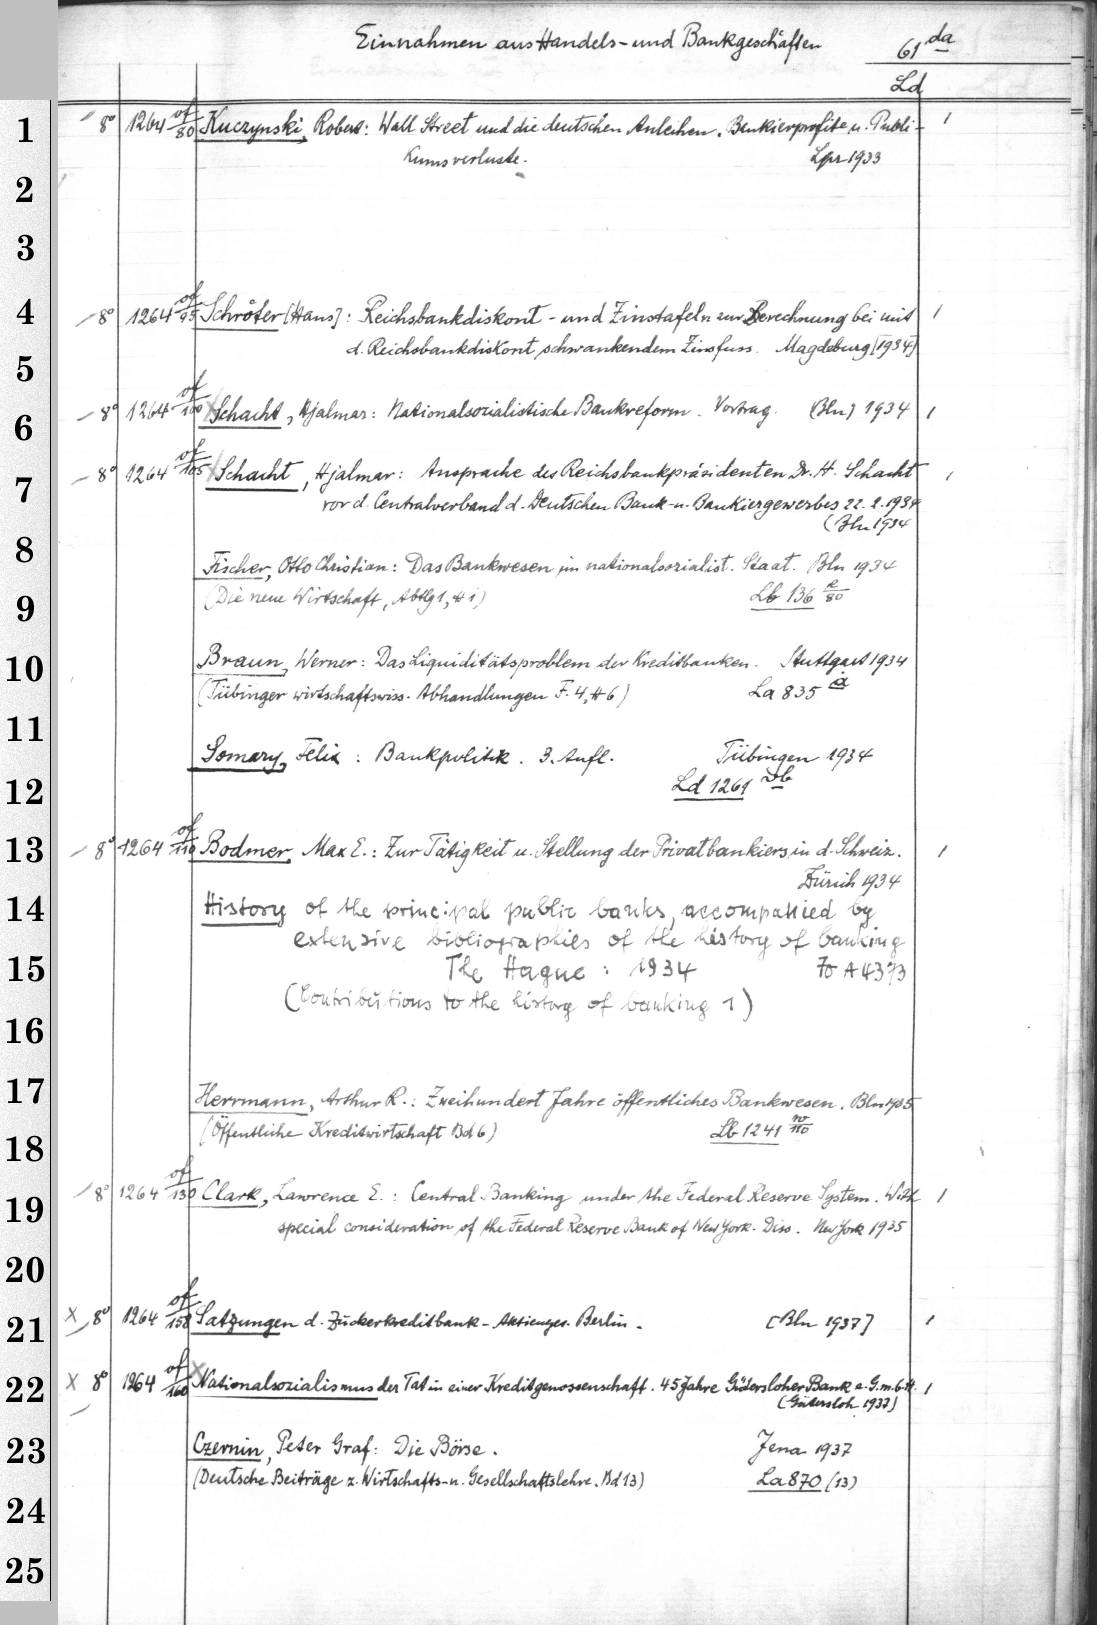 Einnahmen aus Handels- und Bankgeschäften 61 da
Ld
1 8° 1264 of/80 Kuczynski, Robert: Wall Street und die deutschen Anleihen. Bankierprofite u. Publi- 1
kumsverluste. Lpz 1933
2
3
4 8° 1264 of/95 Schröter [Hans]: Reichsbankdiskont- und Zinstafeln zur Berechnung bei mit 1
d. Reichsbankdiskont schwankendem Zinsfuss. Magdeburg [1934]
5
6 8° 1264 of/100 Schacht, Hjalmar: Nationalsozialistische Bankreform. Vortrag. (Bln) 1934 1
7 8° 1264 of/105 Schacht, Hjalmar: Ansprache des Reichsbankpräsidenten Dr. H. Schacht 1
vor d. Centralverband d. Deutschen Bank- u. Bankiergewerbes 22.2.1934
(Bln 1934
8 Fischer, Otto Christian: Das Bankwesen im nationalsozialist. Staat. Bln 1934
9 (Die neue Wirtschaft, Abtlg 1, H 1) Lb 136 k/80
10 Braun, Werner: Das Liquiditätsproblem der Kreditbanken. Stuttgart 1934
(Tübinger wirtschaftswiss. Abhandlungen F. 4, H 6) La 835 a
11
Somary, Felix: Bankpolitik. 3. Aufl. Tübingen 1934
12 Ld 1261 vb
13 8° 1264 of/110 Bodmer, Max E.: Zur Tätigkeit u. Stellung der Privatbankiers in d. Schweiz. 1
Zürich 1934
14 History of the principal public banks, accompanied by
extensive bibliographies of the history of banking
15 The Hague: 1934 70 A 4373
(Contributions to the history of banking 1)
16
17 Herrmann, Arthur R.: Zweihundert Jahre öffentliches Bankwesen. Bln 1935
18 (Öffentliche Kreditwirtschaft Bd 6) Lb 1241 w/110
19 8° 1264 of/130 Clark, Lawrence E.: Central Banking under the Federal Reserve System. With 1
special consideration of the Federal Reserve Bank of New York. Diss. New York 1935
20
21 X 8° 1264 of/158 Satzungen d. Zuckerkreditbank-Aktienges. Berlin. [Bln 1937] 1
22 X 8° 1264 of/160 Nationalsozialismus der Tat in einer Kreditgenossenschaft. 45 Jahre Gütersloher Bank e.G.m.b.H. 1
(Gütersloh 1937)
23 Czernin, Peter Graf: Die Börse. Jena 1937
(Deutsche Beiträge z. Wirtschafts- u. Gesellschaftslehre. Bd 13) La 870 (13)
24
25